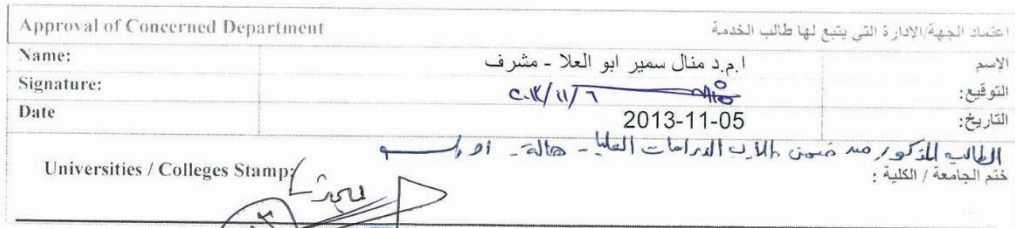 Approval of Concerned Department اعتماد الجهة/الادارة التي يتبع لها طالب الخدمة
Name: ا.م.د منال سمير ابو العلا - مشرف الاسم
Signature: التوقيع:
Date 2013-11-05 التاريخ:
الطالب المذكور من ضمن الدراسات العليا - هالة -
Universities / Colleges Stamp: ختم الجامعة / الكلية :